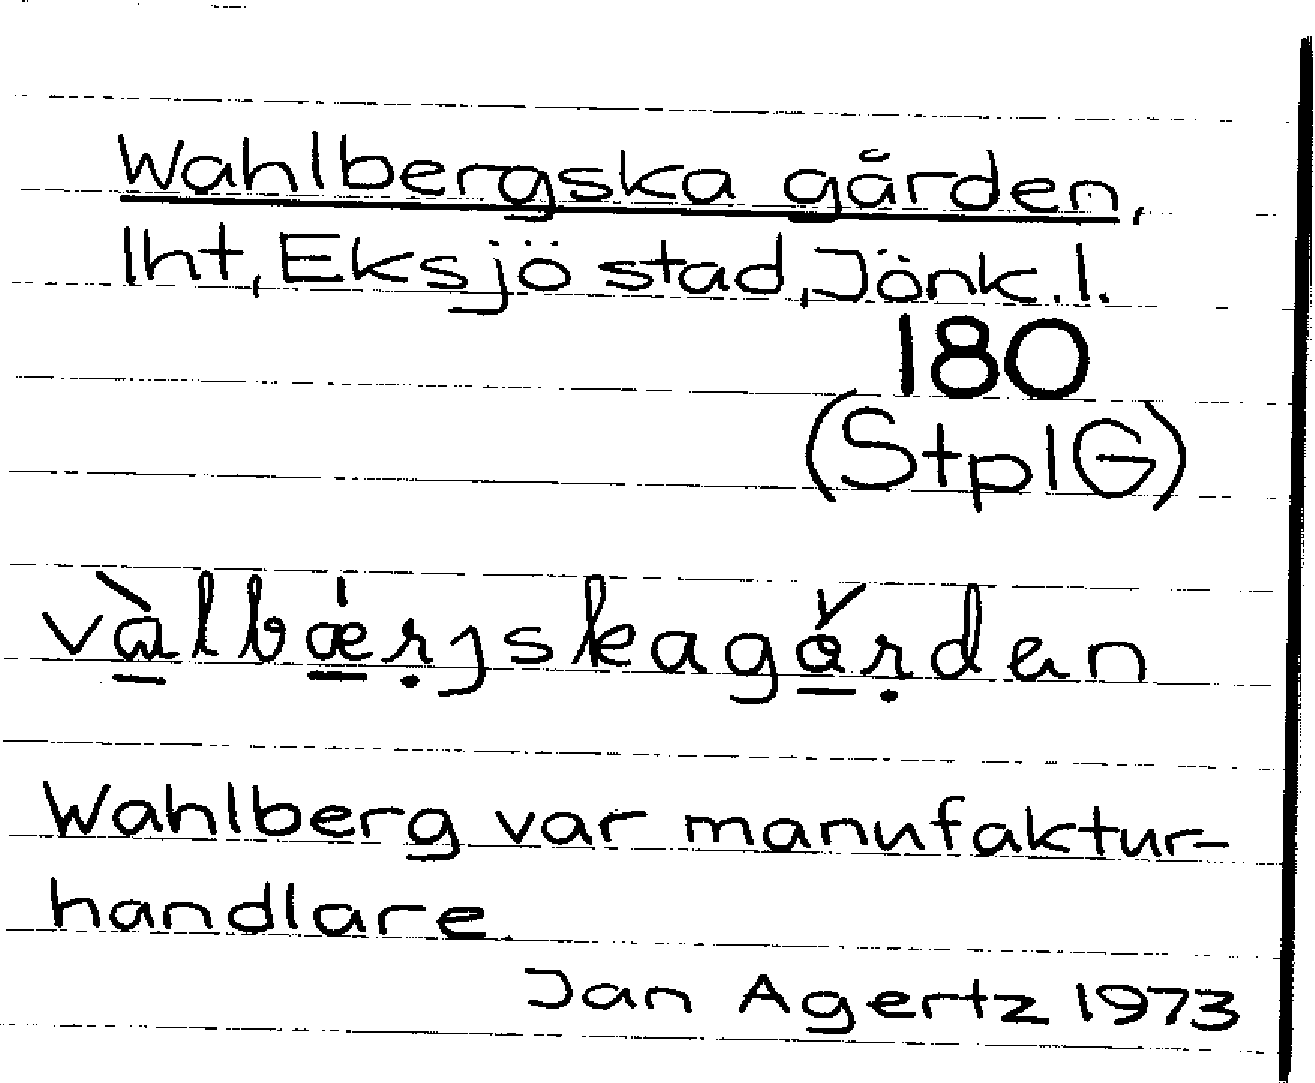 Wahlbergska gården,
lht, Eksjö stad, Jönk. l.
180
(StplG)
vàlbǽrjskagå̌rden
Wahlberg var manufaktur-
handlare.
Jan Agertz 1973